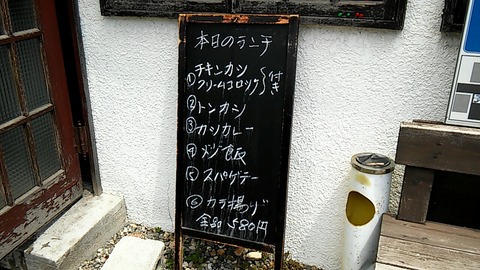 本日のランチ
① チキンカツ
クリームコロッケ 付き
② トンカツ
③ カツカレー
⑤ スパゲテー
⑥ カラ揚げ
全品 580円